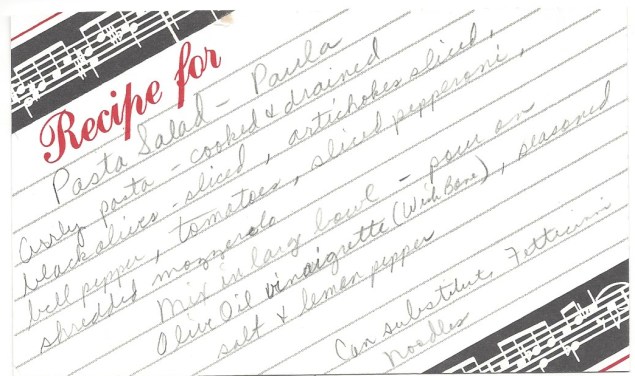 Recipe for
Pasta Salad - Paula
Curly pasta - cooked & drained
black olives - sliced, artichokes sliced,
bell pepper, tomatoes, sliced pepperoni,
shredded mozzerola
Mix in large bowl - pour on
Olive Oil vinaigrette (Wish Bone), seasoned
salt & lemon pepper
Can substitute Fetticini
noodles